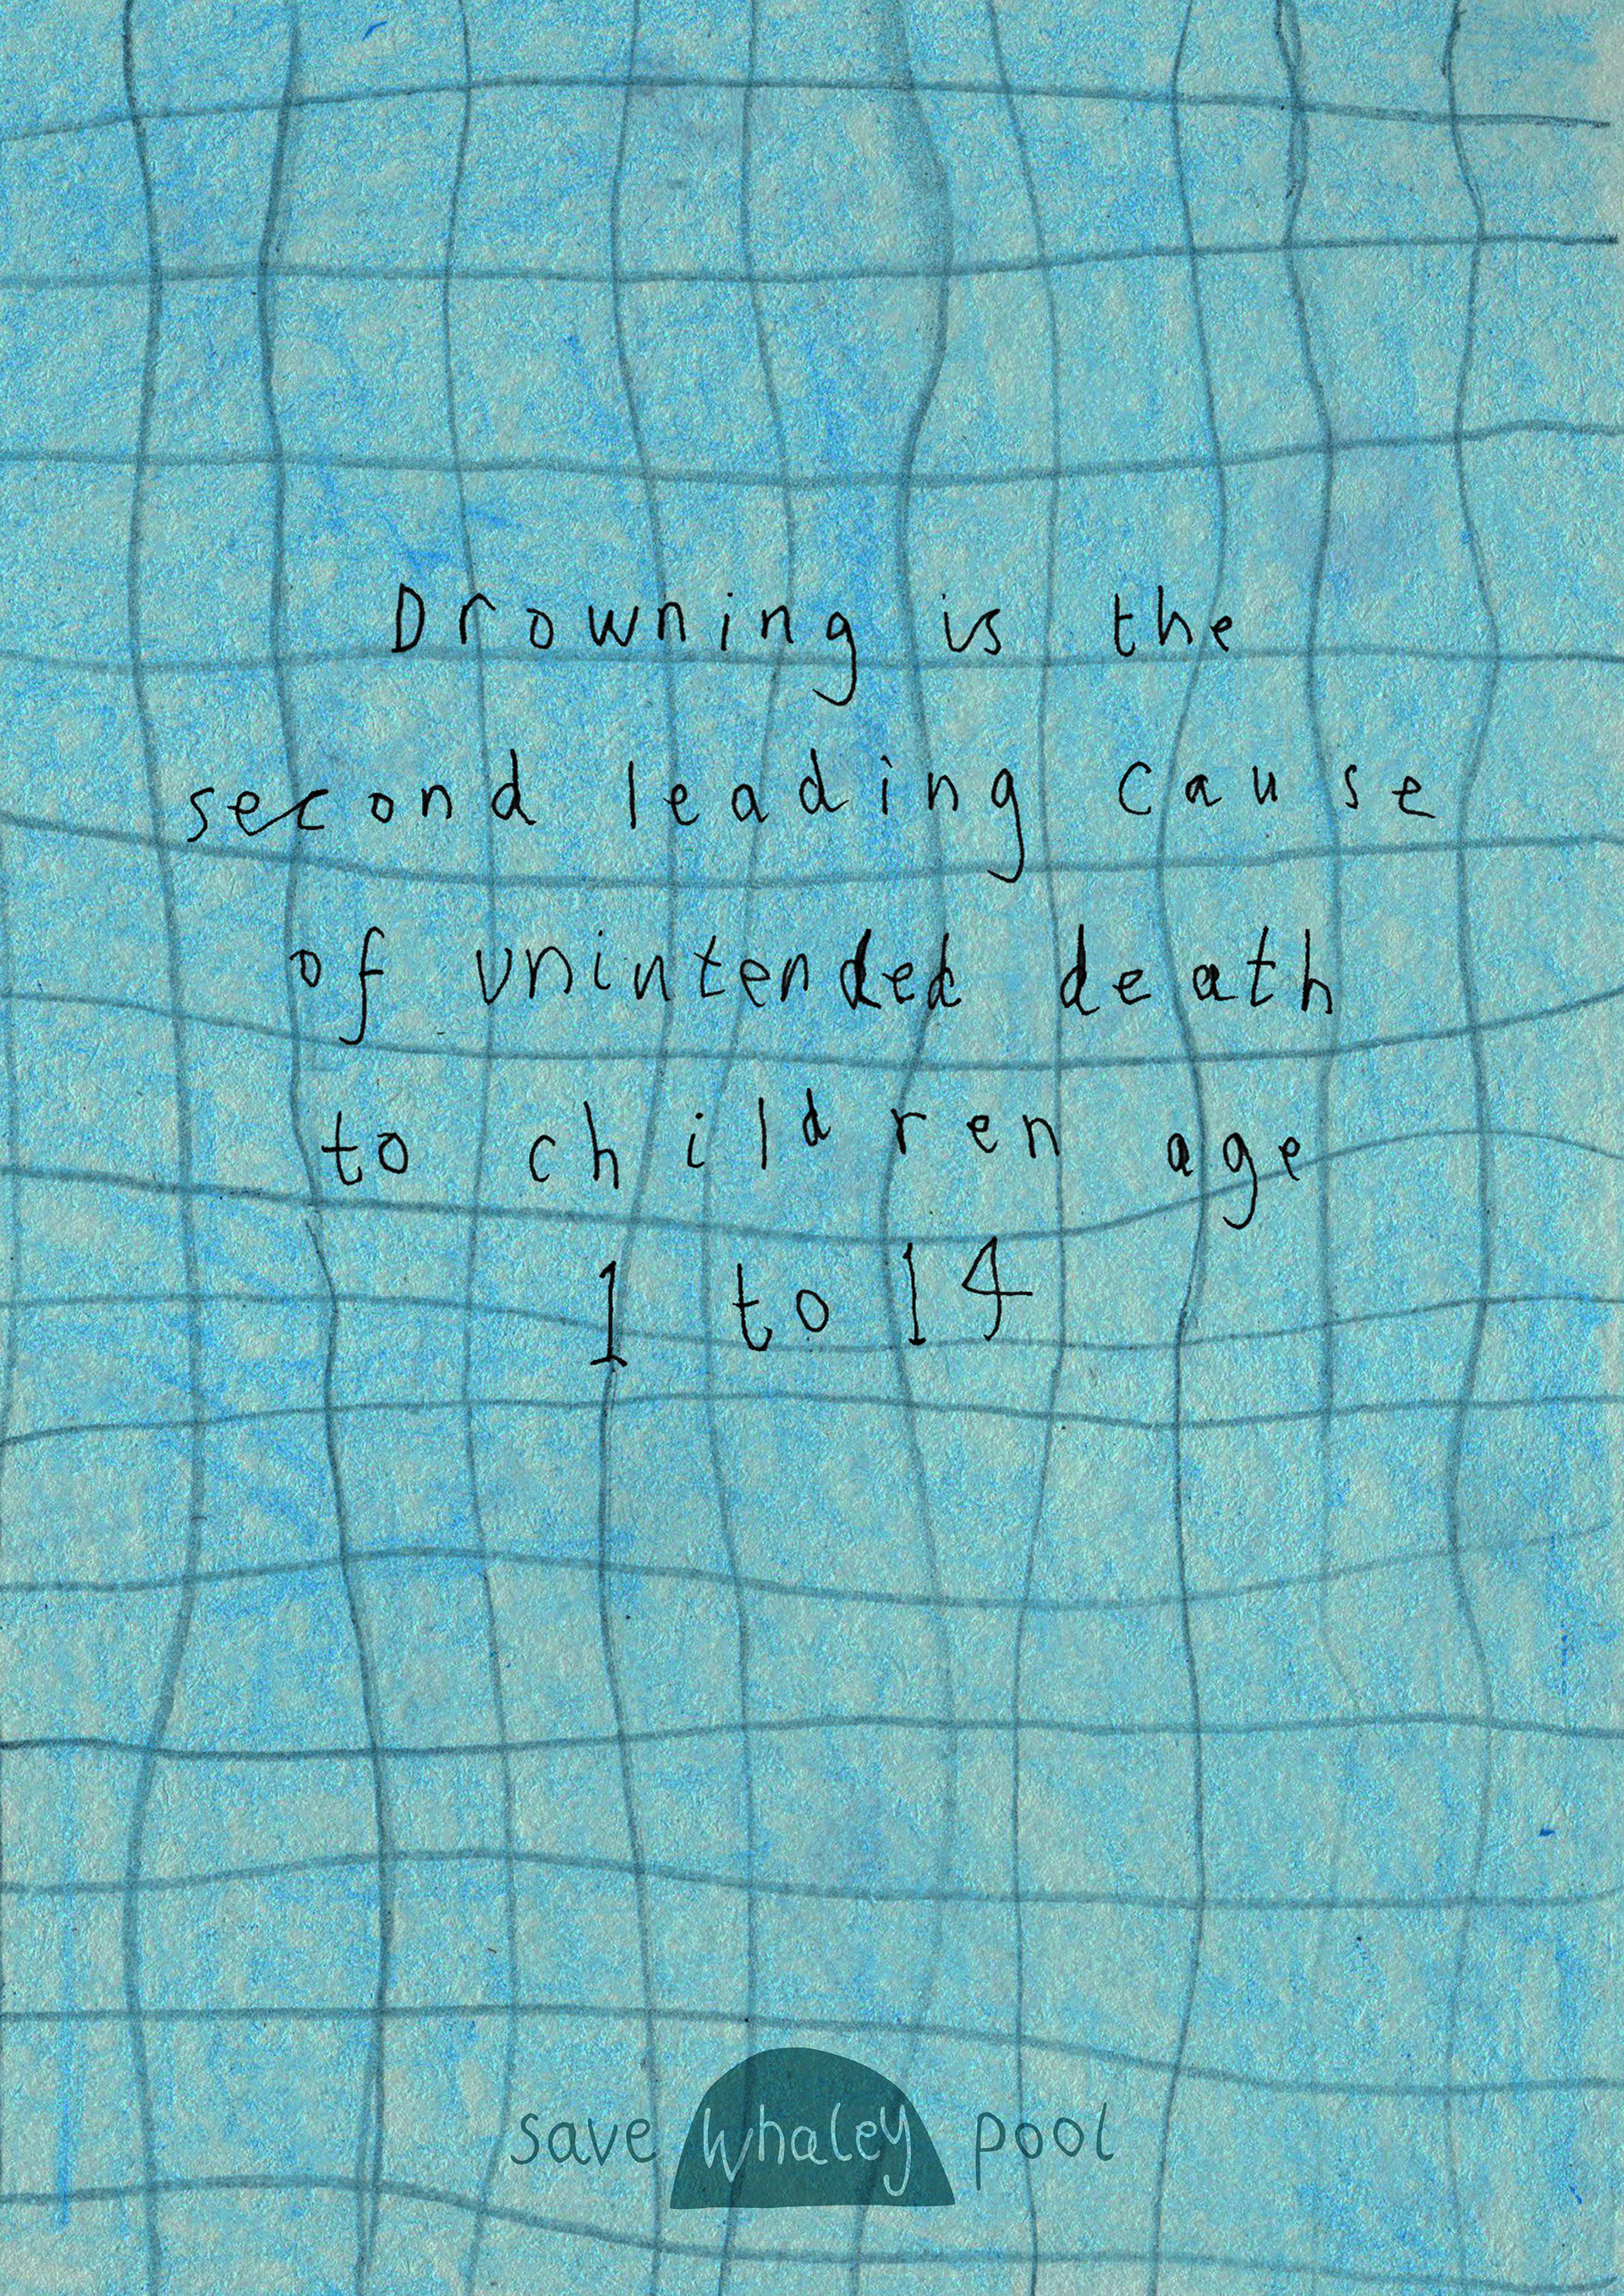 Drowning is the
second leading cause
of unintended death
to children age
1 to 14
save whaley pool